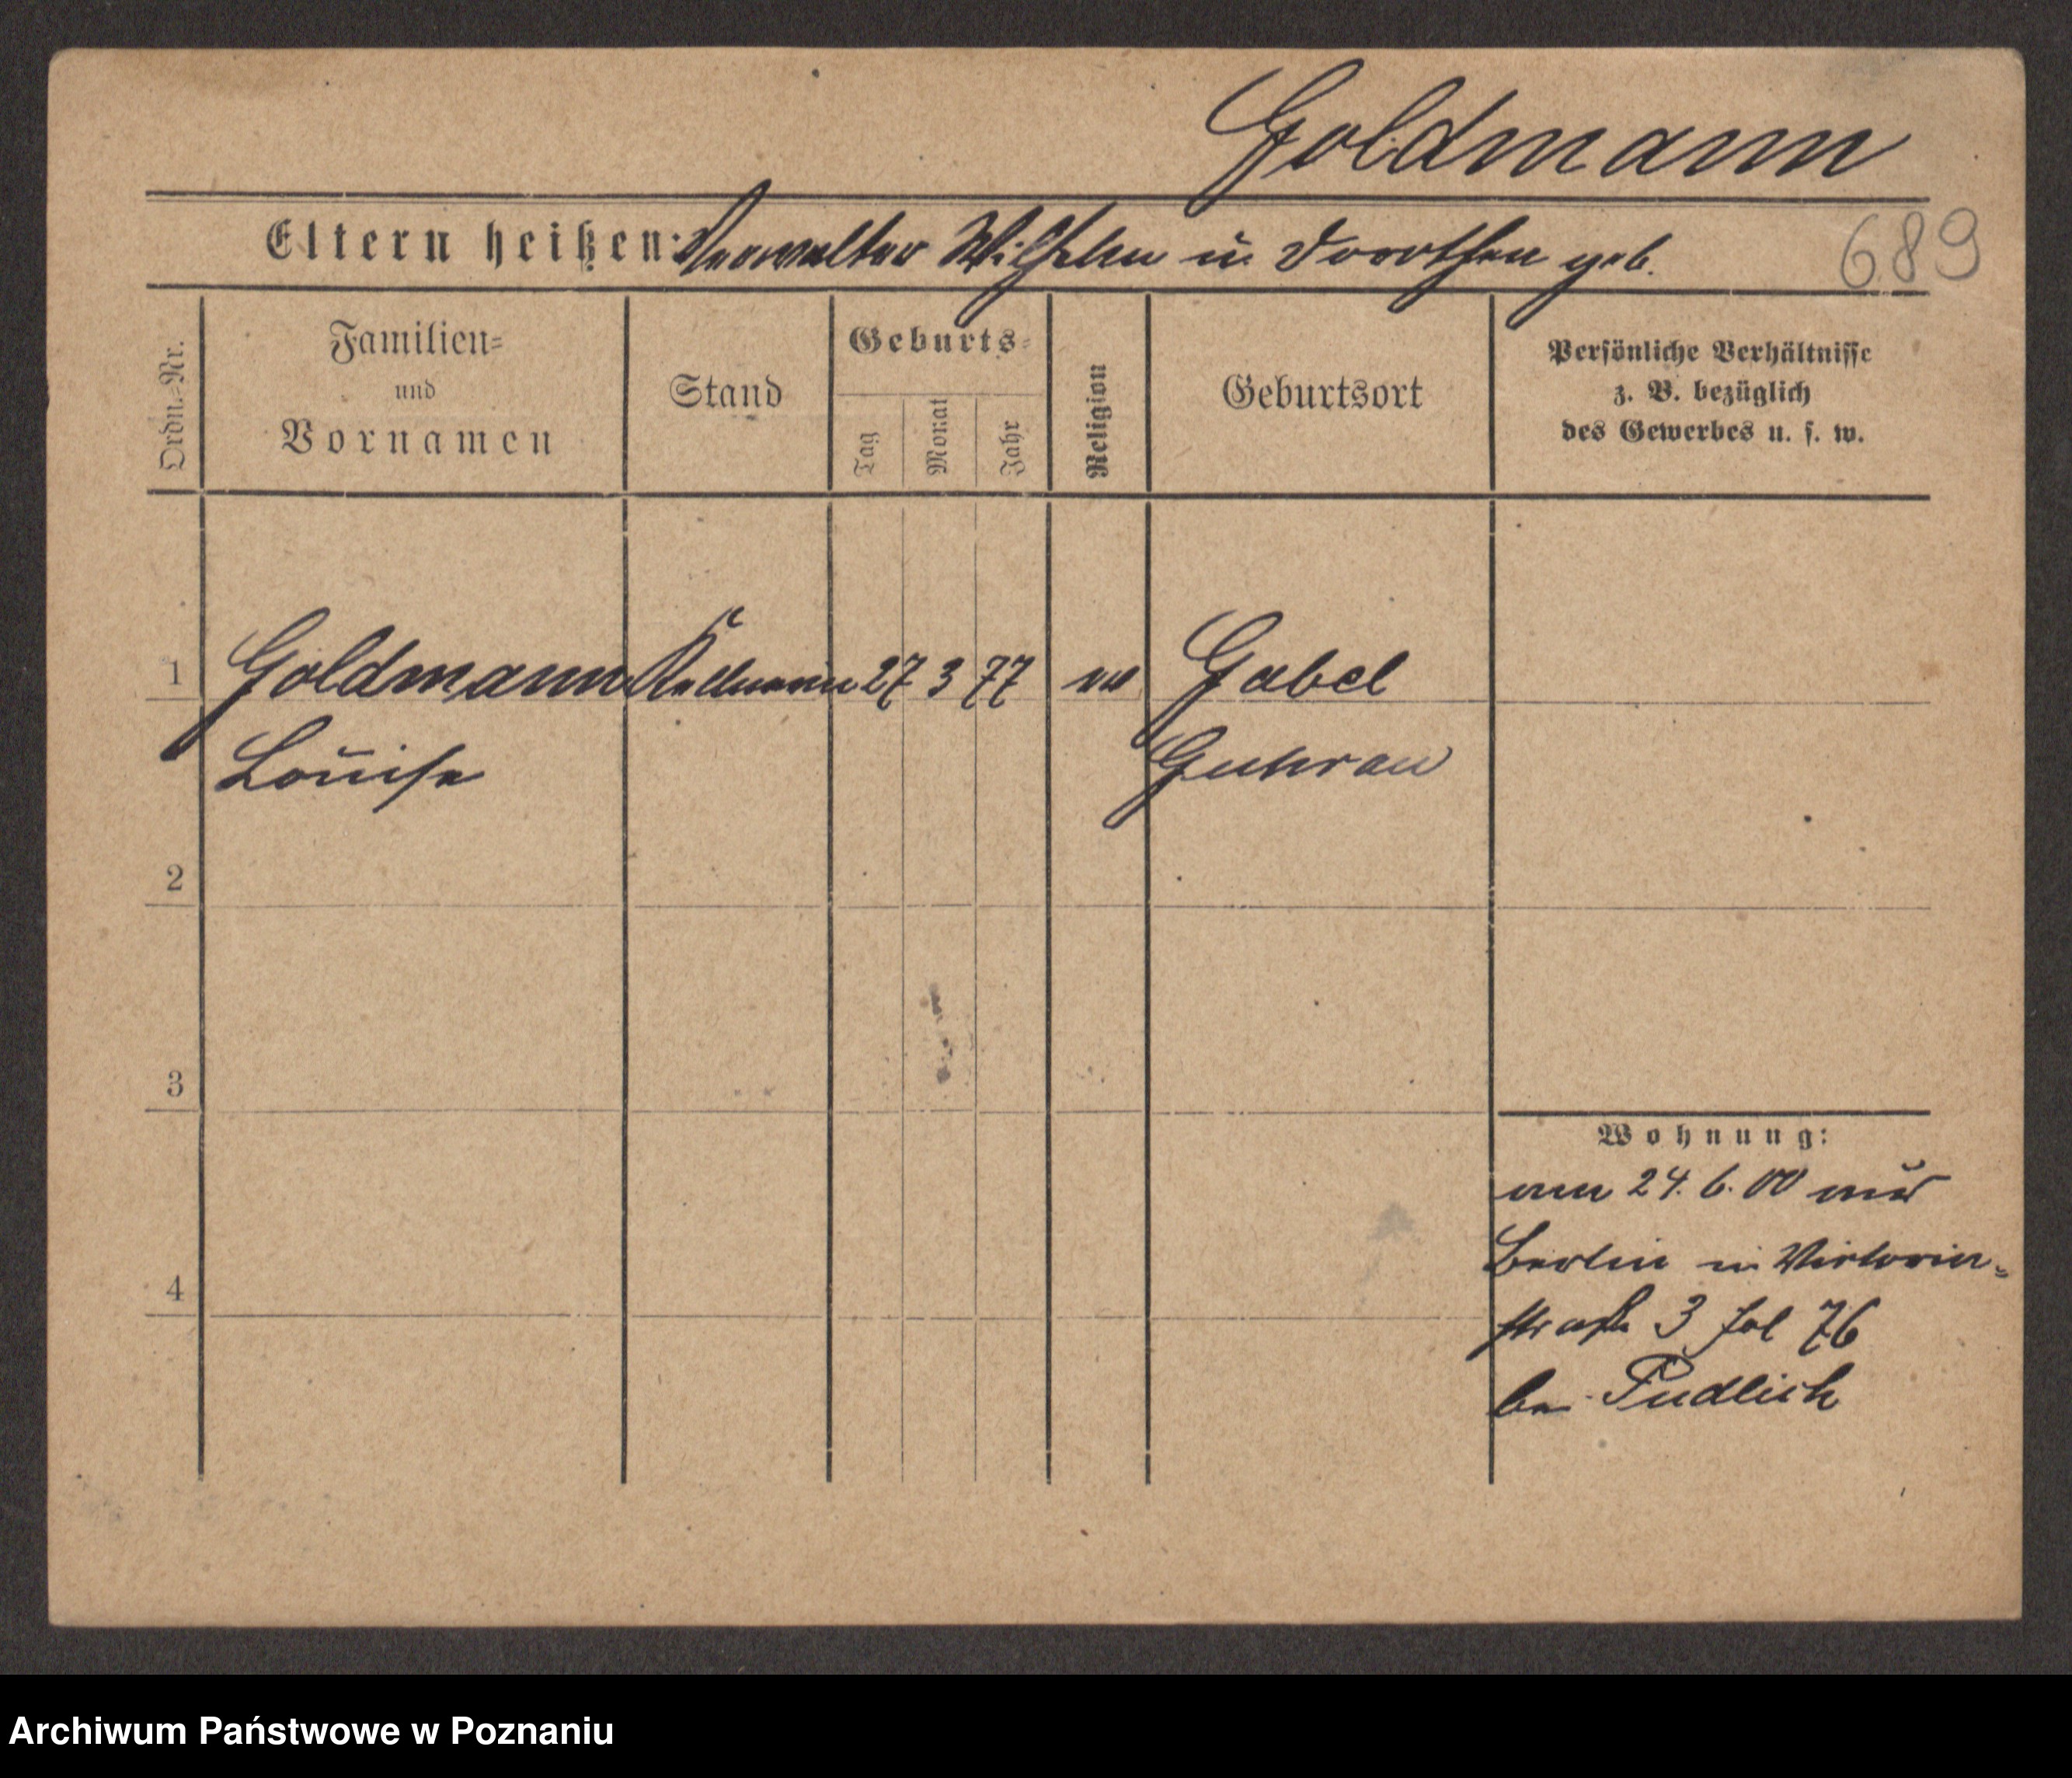 Goldmann
Eltern heißen: Verwalter Wilhelm u Dorothea geb.
689
Ordn.-Nr.
Familien- und Vornamen
Stand
Geburts-
Tag
Monat
Jahr
Religion
Geburtsort
Persönliche Verhältnisse
z. B. bezüglich
des Gewerbes u. s. w.
1 Goldmann Kellnerin 27 3 77 ev Gabel
Louise Guhrau
2
3
4
Wohnung:
am 24. 6. 00 aus
Berlin in Victoria-
straße 3 fol 76
bei Pudlich
Archiwum Państwowe w Poznaniu